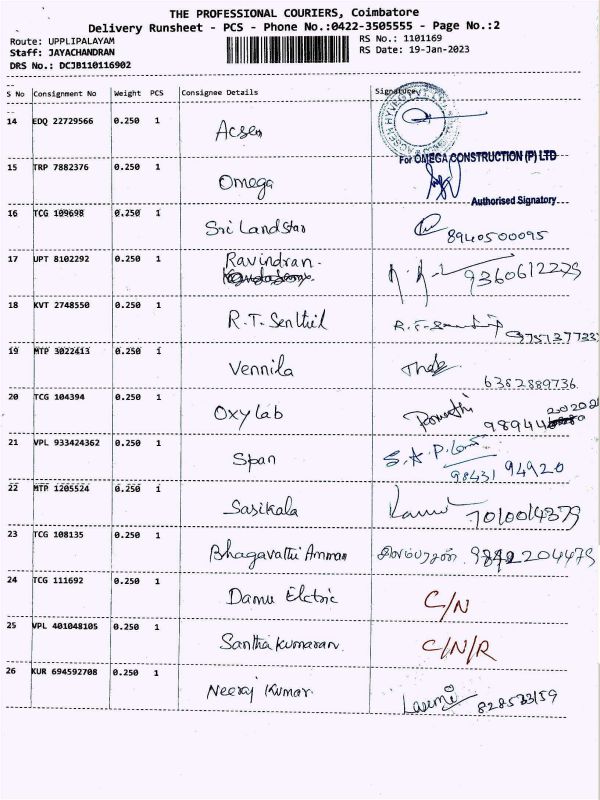 THE PROFESSIONAL COURIERS, Coimbatore
Delivery Runsheet - PCS - Phone No.:0422-3505555 - Page No.:2
Route: UPPLIPALAYAM RS No.: 1101169
Staff: JAYACHANDRAN RS Date: 19-Jan-2023
DRS No.: DCJB110116902
S No Consignment No Weight PCS Consignee Details Signature
14 EDQ 22729566 0.250 1 Acsen
15 TRP 7882376 0.250 1 Omega For OMEGA CONSTRUCTION (P) LTD
Authorised Signatory
16 TCG 109698 0.250 1 Sri Landstar 8940500095
17 UPT 8102292 0.250 1 Ravindran. 9360612279
18 KVT 2748550 0.250 1 R.T. Senthil
19 MTP 3022413 0.250 1 Vennila 6382889736
20 TCG 104394 0.250 1 Oxylab
21 VPL 933424362 0.250 1 Span 98431 94920
22 MTP 1205524 0.250 1 Sasikala 7010014379
23 TCG 108135 0.250 1 Bhagavathi Amman
24 TCG 111692 0.250 1 Damu Elctric C/N
25 VPL 401048105 0.250 1 Santhakumaran. C/N/R
26 KUR 694592708 0.250 1 Neeraj Kumar Laxmi